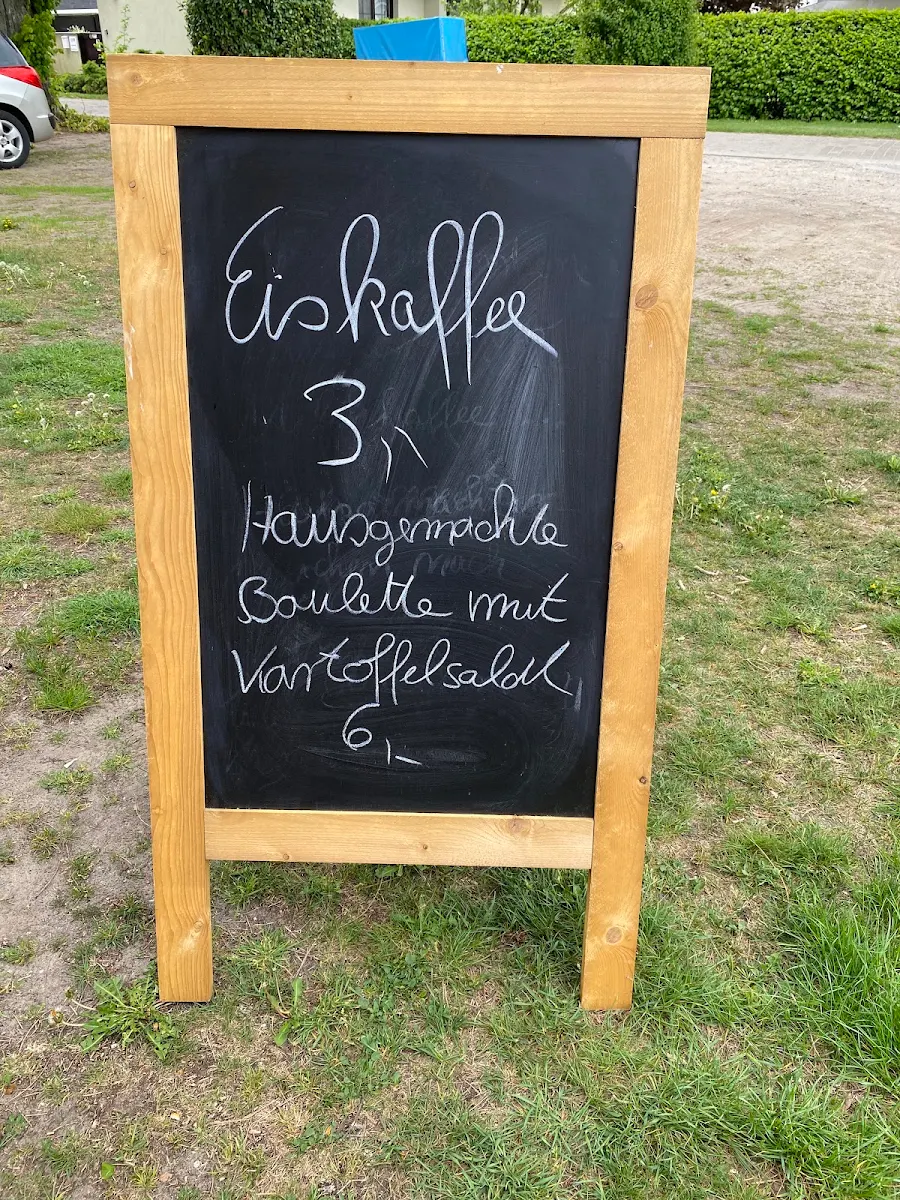 Eiskaffee
3,-
Hausgemachte
Boulette mit
Kartoffelsalat
6,-